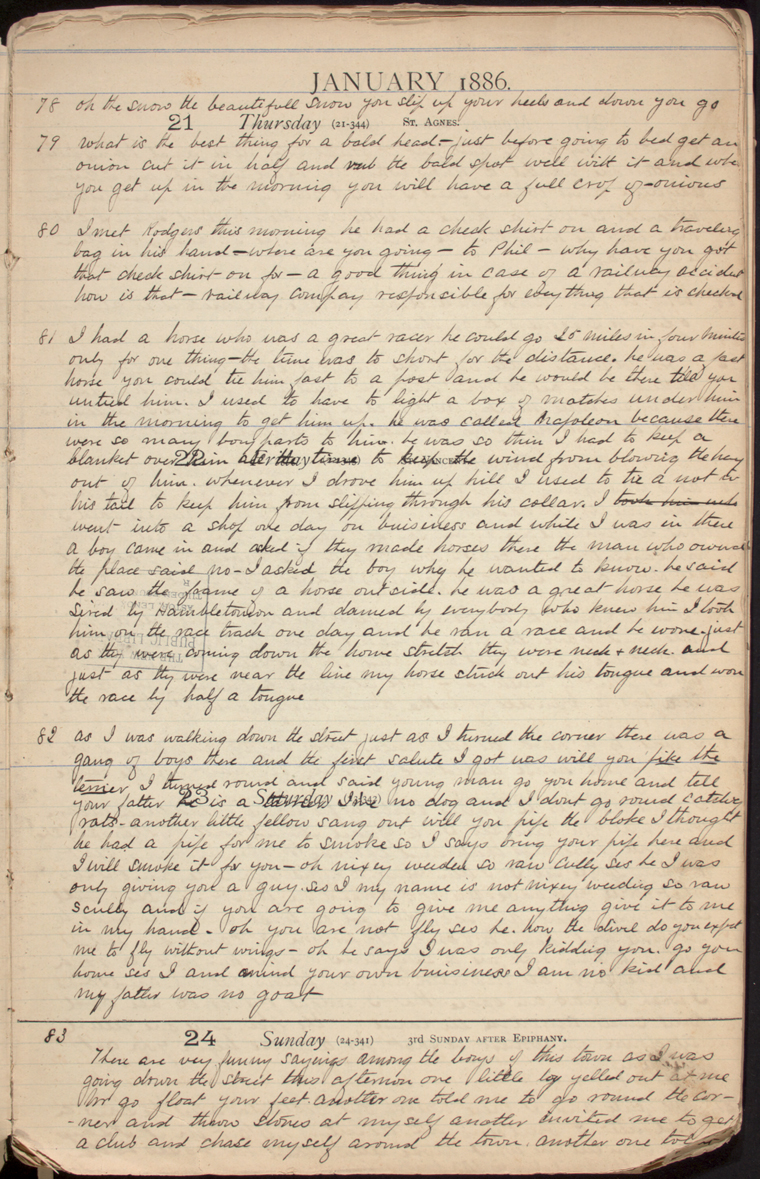 JANUARY 1886.
78 oh the snow the beautifull snow you slip up your heels and down you go
21 Thursday (21-344) ST. AGNES.
79 what is the best thing for a bald head - just before going to bed get an
onion cut it in half and rub the bald spot well with it and when
you get up in the morning you will have a full crop of onious
80 I met Rodgers this morning he had a check shirt on and a traveling
bag in his hand - where are you going - to Phil - why have you got
that check shirt on for - a good thing in case of a railway accident
how is that - railway company responsible for everything that is checked
81 I had a horse who was a great racer he could go 25 miles in four minutes
only for one thing - the time was to short for the distance. he was a fast
horse you could tie him fast to a post and he would be there till you
untied him. I used to have to light a box of matches under him
in the morning to get him up. he was called Napoleon because there
were so many bony parts to him. he was so thin I had to keep a
blanket over him all the time to keep the wind from blowing the hay
22 Friday
out of him. whenever I drove him up hill I used to tie a not in
his tail to keep him from slipping through his collar. I took him
went into a shop one day on buisiness and while I was in there
a boy came in and asked if they made horses there the man who owned
the place said no - I asked the boy why he wanted to know. he said
he saw the frame of a horse outside. he was a great horse he was
sired by and damed by everybody who knew him I took
him on the race track one day and he ran a race and he wone. just
as they were coming down the home stretch they were neck & neck. and
just as they were near the line my horse stuck out his tongue and won
the race by half a tongue
82 as I was walking down the street just as I turned the corner there was a
gang of boys there and the first salute I got was will you pipe the
terrier, I turned round and said young man go you home and tell
your father he is a I no dog and I dont go round catching
23 Saturday
rats - another little fellow sang out will you pipe the bloke I thought
he had a pipe for me to smoke so I says bring your pipe here and
I will smoke it for you - oh nixey weeden so raw cully ses he I was
only giving you a guy. ses I my name is not nixey weeding so raw
scully and if you are going to give me anything give it to me
in my hand - oh you are not fly ses he. how the divil do you expect
me to fly without wings - oh he says I was only kidding you. go you
home ses I and mind your own buisiness I am no kid and
my father was no goat
83 24 Sunday (24-341) 3RD SUNDAY AFTER EPIPHANY.
There are very funny sayings among the boys of this town as I was
going down the street this afternoon one little boy yelled out at me
go float your feet. another one told me to go round the cor-
-ner and throw stones at myself another invited me to get
a club and chase myself around the town. another one told